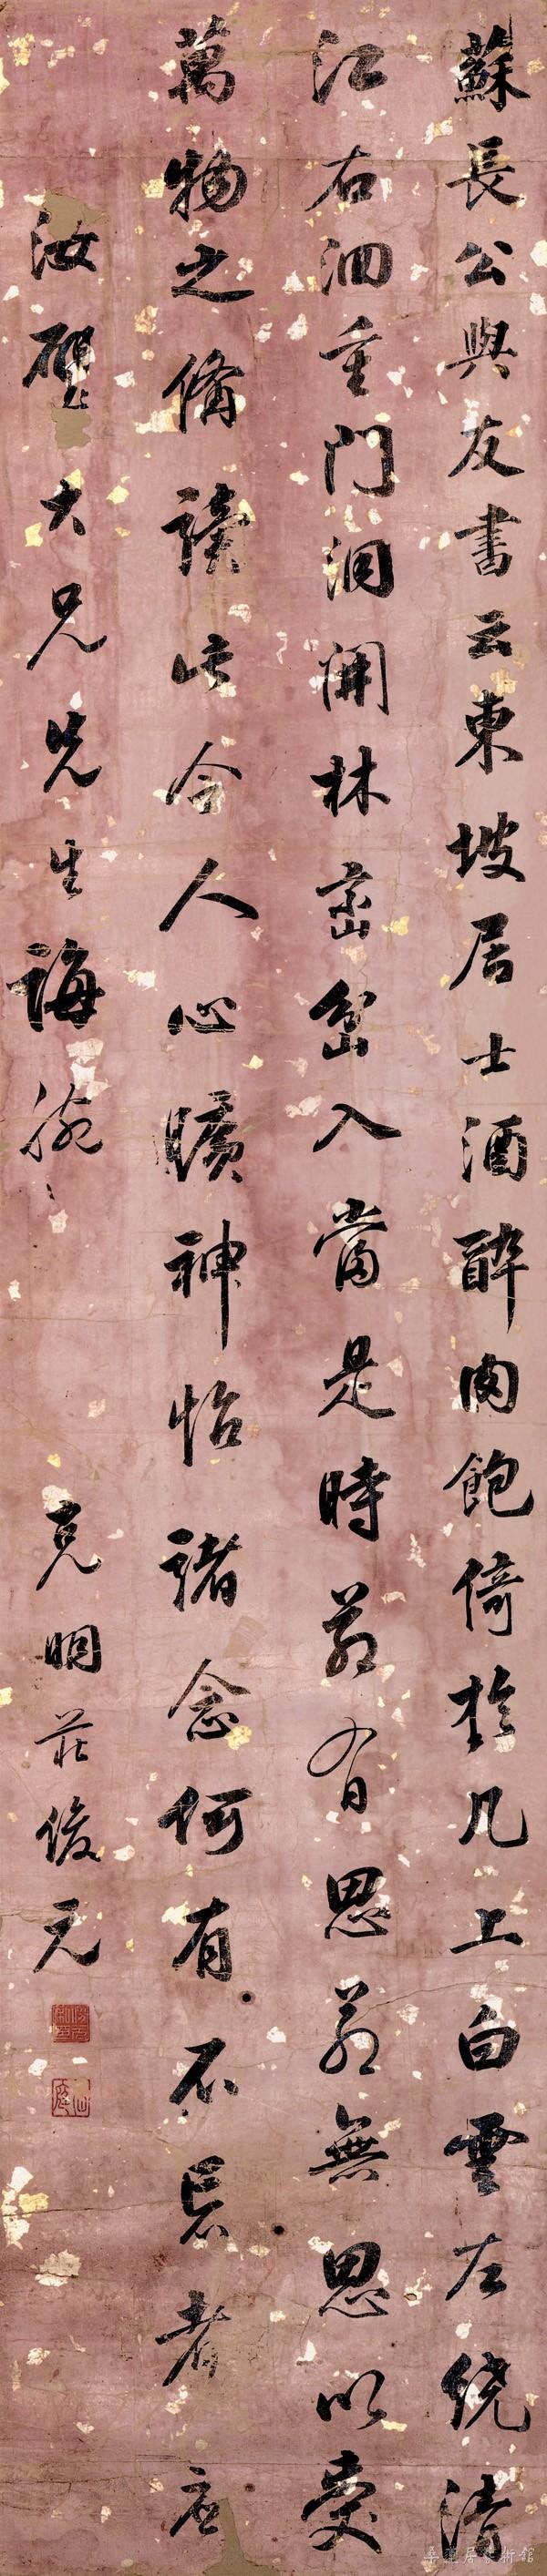 蘇長公與友書云東坡居士酒醉肉飽倚於几上白雲左繞清
江右洄重門洞開林巒岔入當是時若有思若無思以受
萬物之備讀此令人心曠神怡諸念何有不忘者應
汝璧大兄先生誨
克明莊俊元